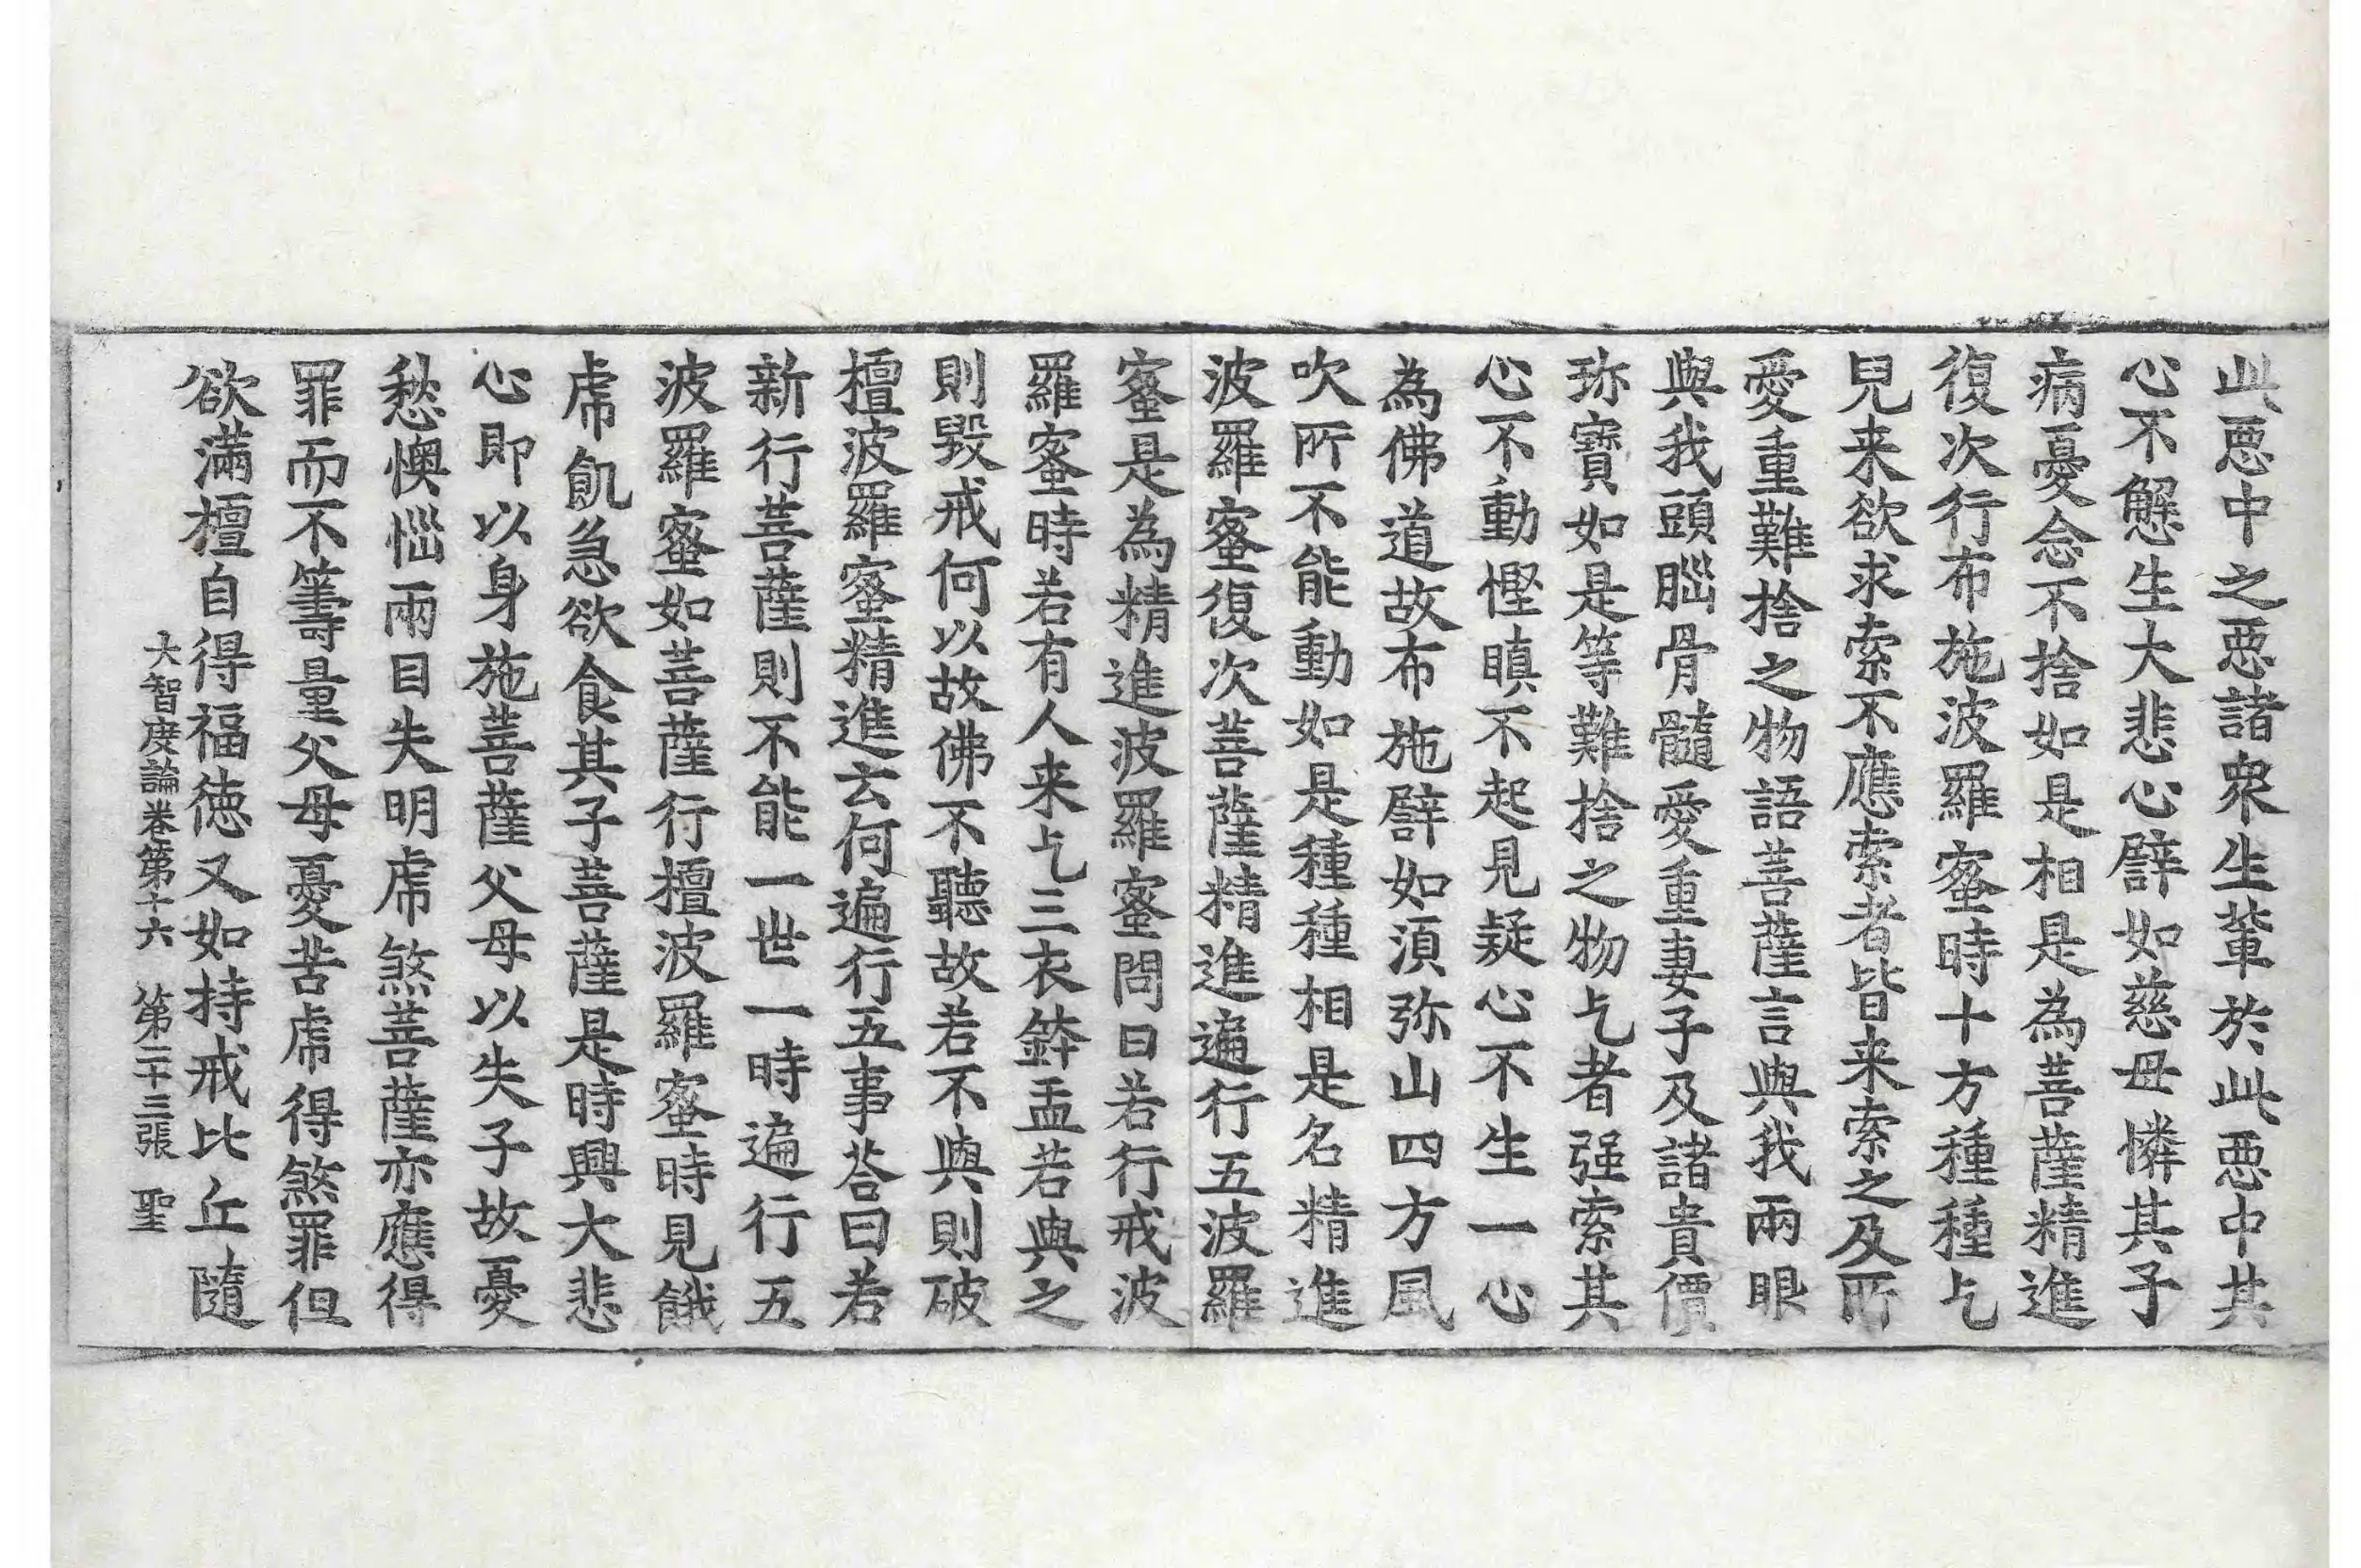 此惡中之惡諸衆生輩於此惡中其
心不懈生大悲心譬如慈母憐其子
病憂念不捨如是相是為菩薩精進
復次行布施波羅蜜時十方種種乞
兒来欲求索不應索者皆来索之及所
愛重難捨之物語菩薩言與我兩眼
與我頭腦骨髓愛重妻子及諸貴價
珎寶如是等難捨之物乞者强索其
心不動慳瞋不起見疑心不生一心
為佛道故布施譬如湏弥山四方風
吹所不能動如是種種相是名精進
波羅蜜復次菩薩精進遍行五波羅
蜜是為精進波羅蜜問曰若行戒波
羅蜜時若有人来乞三衣鉢盂若與之
則毀戒何以故佛不聽故若不與則破
檀波羅蜜精進云何遍行五事荅曰若
新行菩薩則不能一世一時遍行五
波羅蜜如菩薩行檀波羅蜜時見餓
虎飢急欲食其子菩薩是時興大悲
心即以身施菩薩父母以失子故憂
愁懊惱兩目失明虎煞菩薩亦應得
罪而不籌量父母憂苦虎得煞罪但
欲滿檀自得福德又如持戒比丘隨
大智度論卷第十六 第二十三張 聖